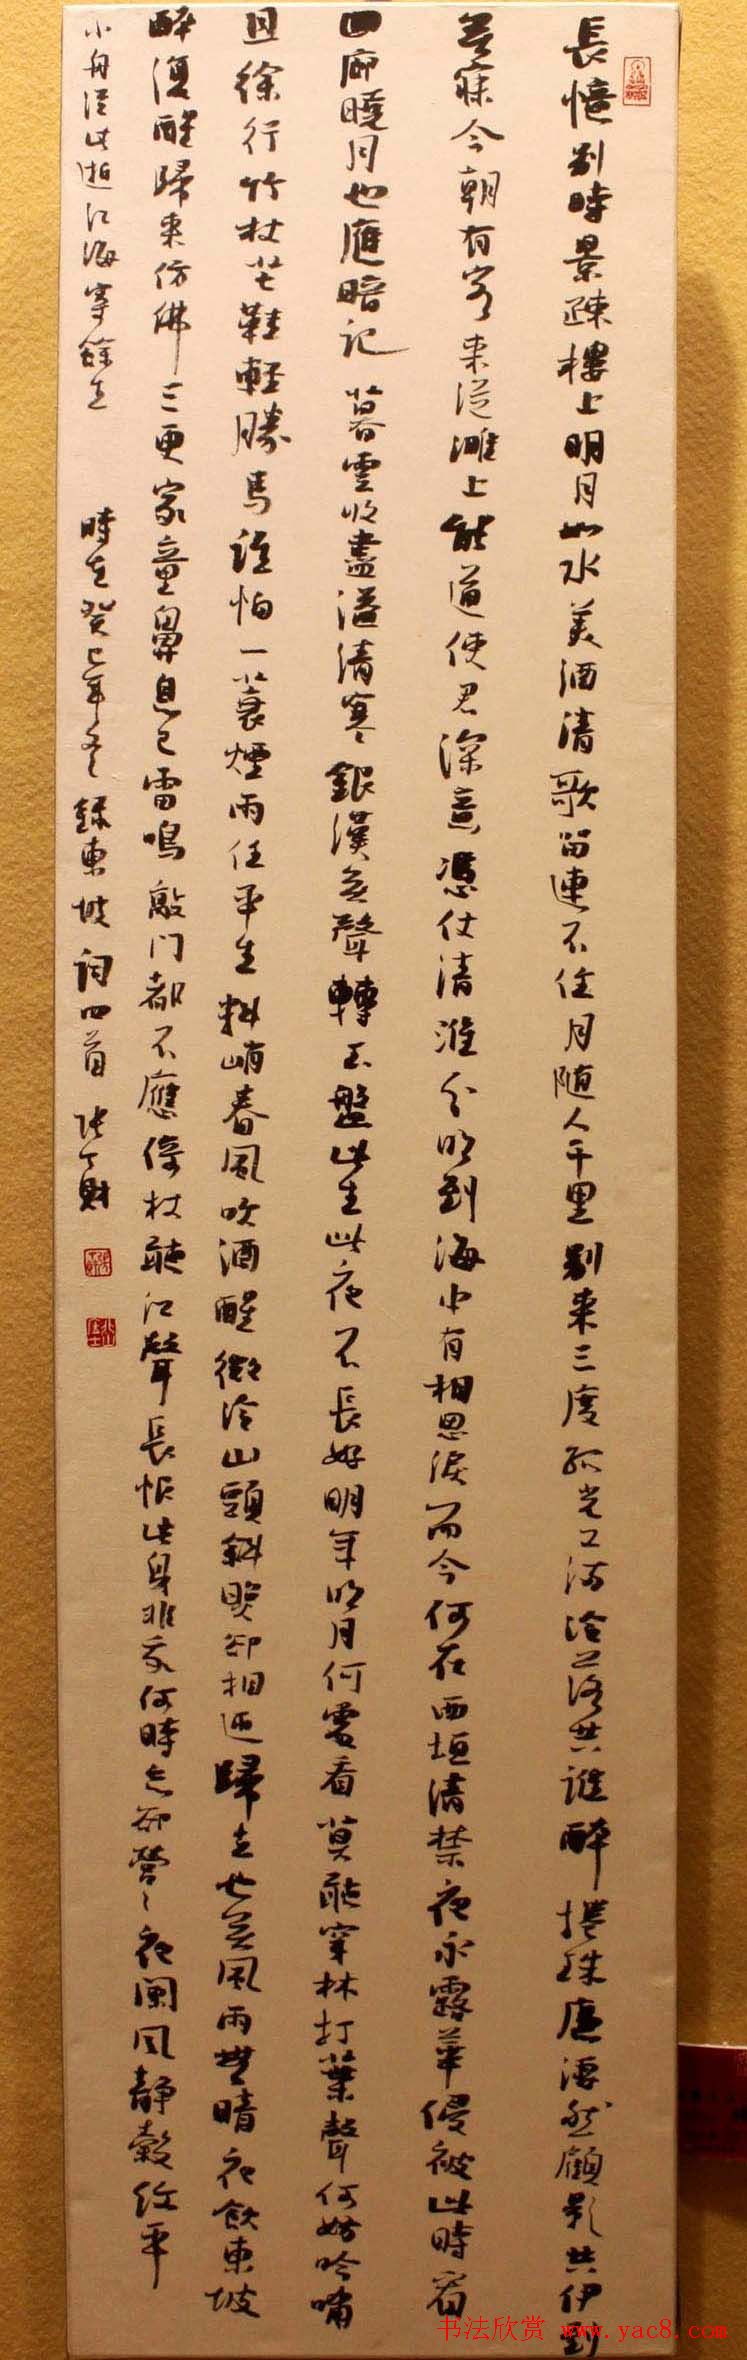 長憶别時景疎樓上明月如水美酒清歌留連不住月随人千里别來三度孤光又满冷落共誰醉捲珠廉凄然顧影共伊到
无寐今朝有客來從濉上能道使君深意憑仗清淮分明到海中有相思淚而今何在西垣清禁夜永露華侵被此時看
回廊曉月也應暗記暮雲收盡溢清寒銀漢无聲轉玉盤此生此夜不長好明年明月何處看莫聽穿林打葉聲何妨吟嘯
且徐行竹杖芒鞋輕勝馬誰怕一蓑煙雨任平生料峭春風吹酒醒微冷山頭斜照却相迎歸去也无風雨無晴夜飲東坡
醉復醒歸來仿佛三更家童鼻息已雷鳴敲門都不應倚杖聽江聲長恨此身非我何時忘却營〻夜闌風静縠紋平
小舟從此逝江海寄餘生
時在癸巳年冬録東坡詞四首張丁財
书法欣赏 www.yac8.com